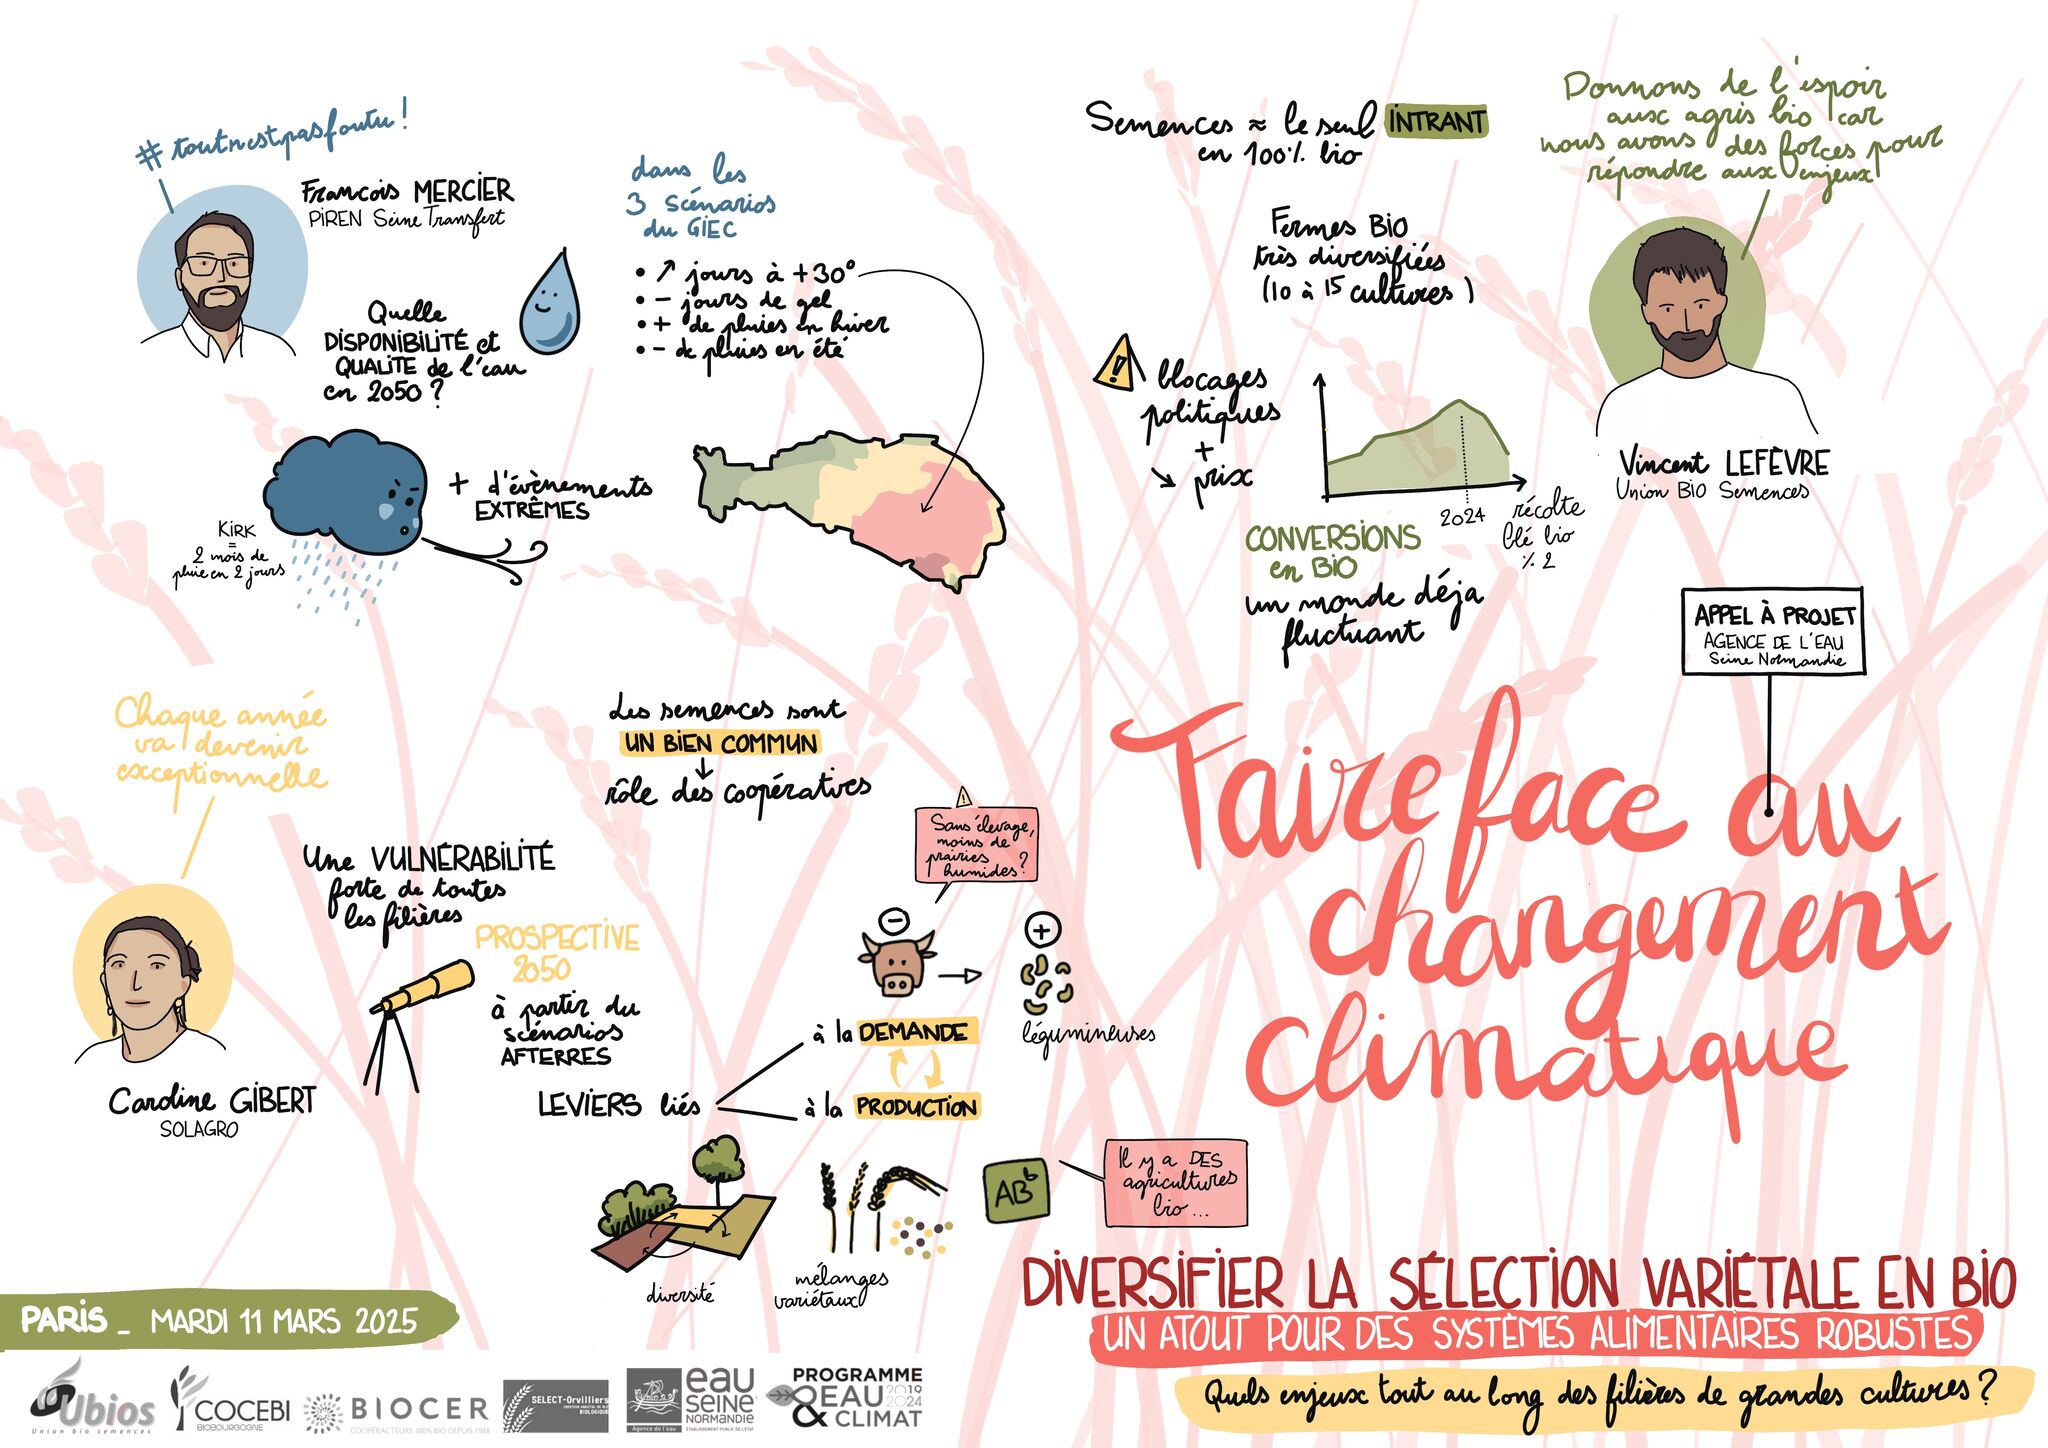 #toutnestpasfoutu!
François MERCIER
PIREN Seine Transfert
Quelle
DISPONIBILITÉ et
QUALITÉ de l'eau
en 2050 ?
dans les
3 scénarios
du GIEC
• ↗ jours à +30°
• - jours de gel
• + de pluies en hiver
• - de pluies en été
+ d'évènements
EXTRÊMES
KIRK
=
2 mois de
pluie en 2 jours
Semences ≈ le seul INTRANT
en 100% bio
Donnons de l'espoir
aux agris bio car
nous avons des forces pour
répondre aux enjeux
Fermes BIO
très diversifiées
(10 à 15 cultures)
blocages
politiques
+
↘ prix
2024
récolte
blé bio
% 2
CONVERSIONS
en BIO
un monde déja
fluctuant
Vincent LEFÈVRE
Union BIO Semences
APPEL À PROJET
AGENCE DE L'EAU
Seine Normandie
Chaque année
va devenir
exceptionnelle
Caroline GIBERT
SOLAGRO
Une VULNÉRABILITÉ
forte de toutes
les filières
PROSPECTIVE
2050
à partir du
scénarios
AFTERRES
Les semences sont
UN BIEN COMMUN
↓
rôle des coopératives
Sans élevage,
moins de
prairies
humides ?
légumineuses
LEVIERS liés
à la DEMANDE
à la PRODUCTION
diversité
mélanges
variétaux
AB
Il y a DES
agricultures
bio...
Faire face au
changement
climatique
DIVERSIFIER LA SÉLECTION VARIÉTALE EN BIO
UN ATOUT POUR DES SYSTÈMES ALIMENTAIRES ROBUSTES
Quels enjeux tout au long des filières de grandes cultures ?
PARIS _ MARDI 11 MARS 2025
Ubios
Union bio semences
COCEBI
BIOBOURGOGNE
BIOCER
COOPÉRACTEURS 100% BIO DEPUIS 1988
SELECT-Orvilliers
BIOLOGIQUE
Agence de l'eau
eau
SEINE
NORMANDIE
ÉTABLISSEMENT PUBLIC DE L'ÉTAT
PROGRAMME
EAU 2019 2024
& CLIMAT